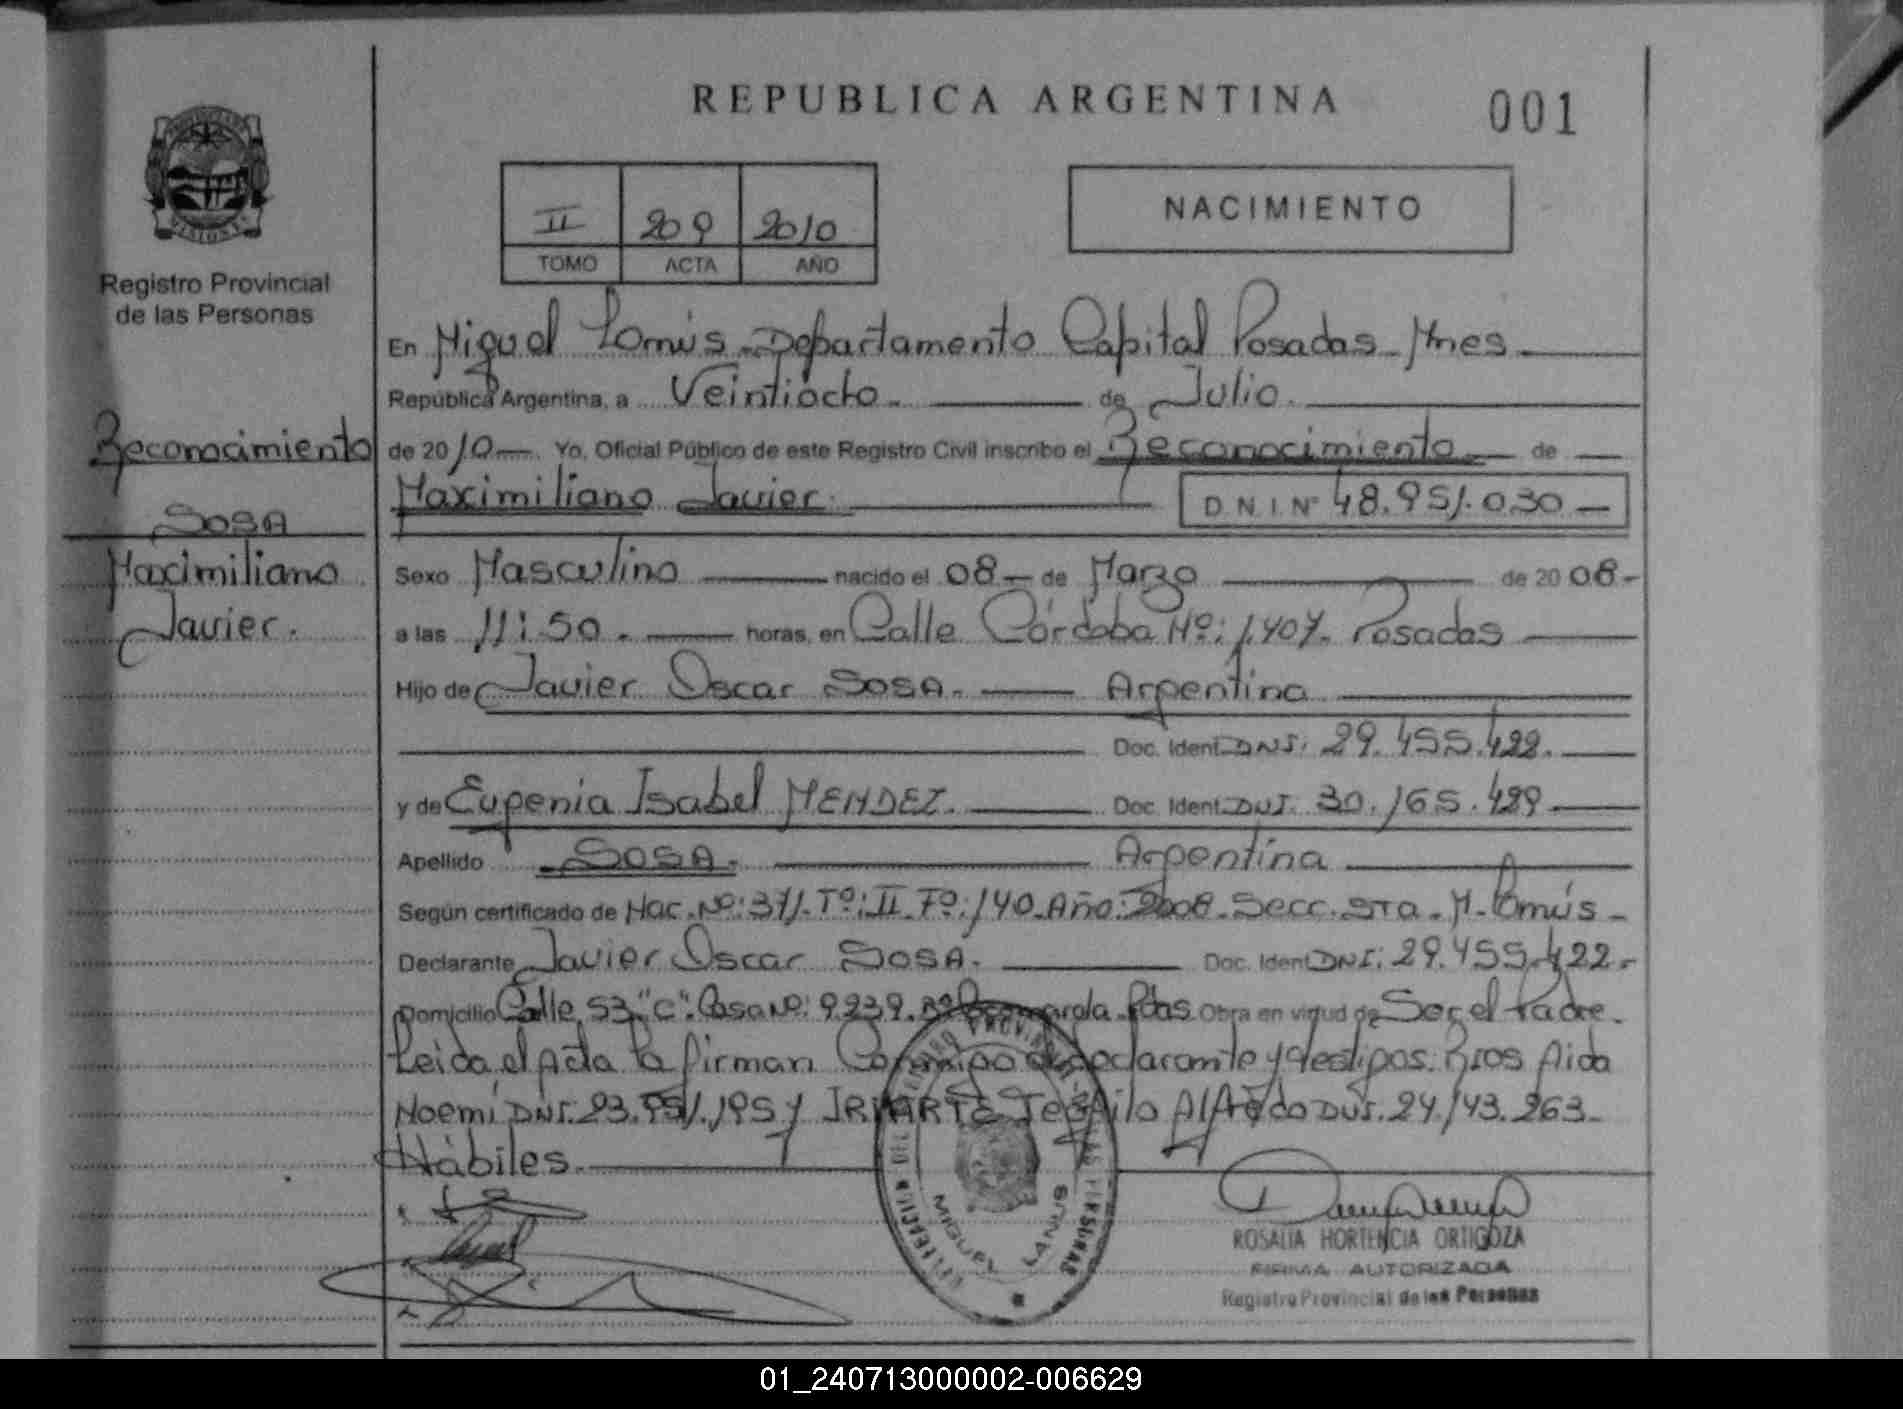 REPUBLICA ARGENTINA
001
II 209 2010
TOMO ACTA AÑO
NACIMIENTO
Registro Provincial
de las Personas
Reconocimiento
SOSA
Maximiliano
Javier.
En Miguel Lanús - Departamento Capital Posadas - Mnes
República Argentina, a Veintiocho. de Julio.
de 2010 Yo, Oficial Público de este Registro Civil inscribo el Reconocimiento de
Maximiliano Javier. D.N.I. Nº 48.951.030
Sexo Masculino nacido el 08 de Marzo de 2008
a las 11:50. horas, en Calle Córdoba Nº: 1.407. Posadas
Hijo de Javier Oscar SOSA. Argentina
Doc. Ident. DNI: 29.455.422.
y de Eugenia Isabel MENDEZ. Doc. Ident. DNI. 30.165.429
Apellido SOSA. Argentina
Según certificado de Nac. Nº: 371. Tº: II. Fº: 140. Año: 2008. Secc. 5Ta. M. Lanús
Declarante Javier Oscar SOSA. Doc. Ident DNI: 29.455.422.
Domicilio Calle 53 "C". Casa Nº: 9239. Bº Pdas Obra en virtud de Ser el Padre.
Leida el Acta la firman Conmigo el declarante y testigos: Rios Aida
Noemí DNI. 23. .195 y IRIARTE Teófilo Alfredo DNI. 24.143.263
Hábiles.
REGISTRO PROVINCIAL DE LAS PERSONAS
MIGUEL LANUS
ROSALIA HORTENCIA ORTIGOZA
FIRMA AUTORIZADA
Registro Provincial de las Personas
01_240713000002-006629